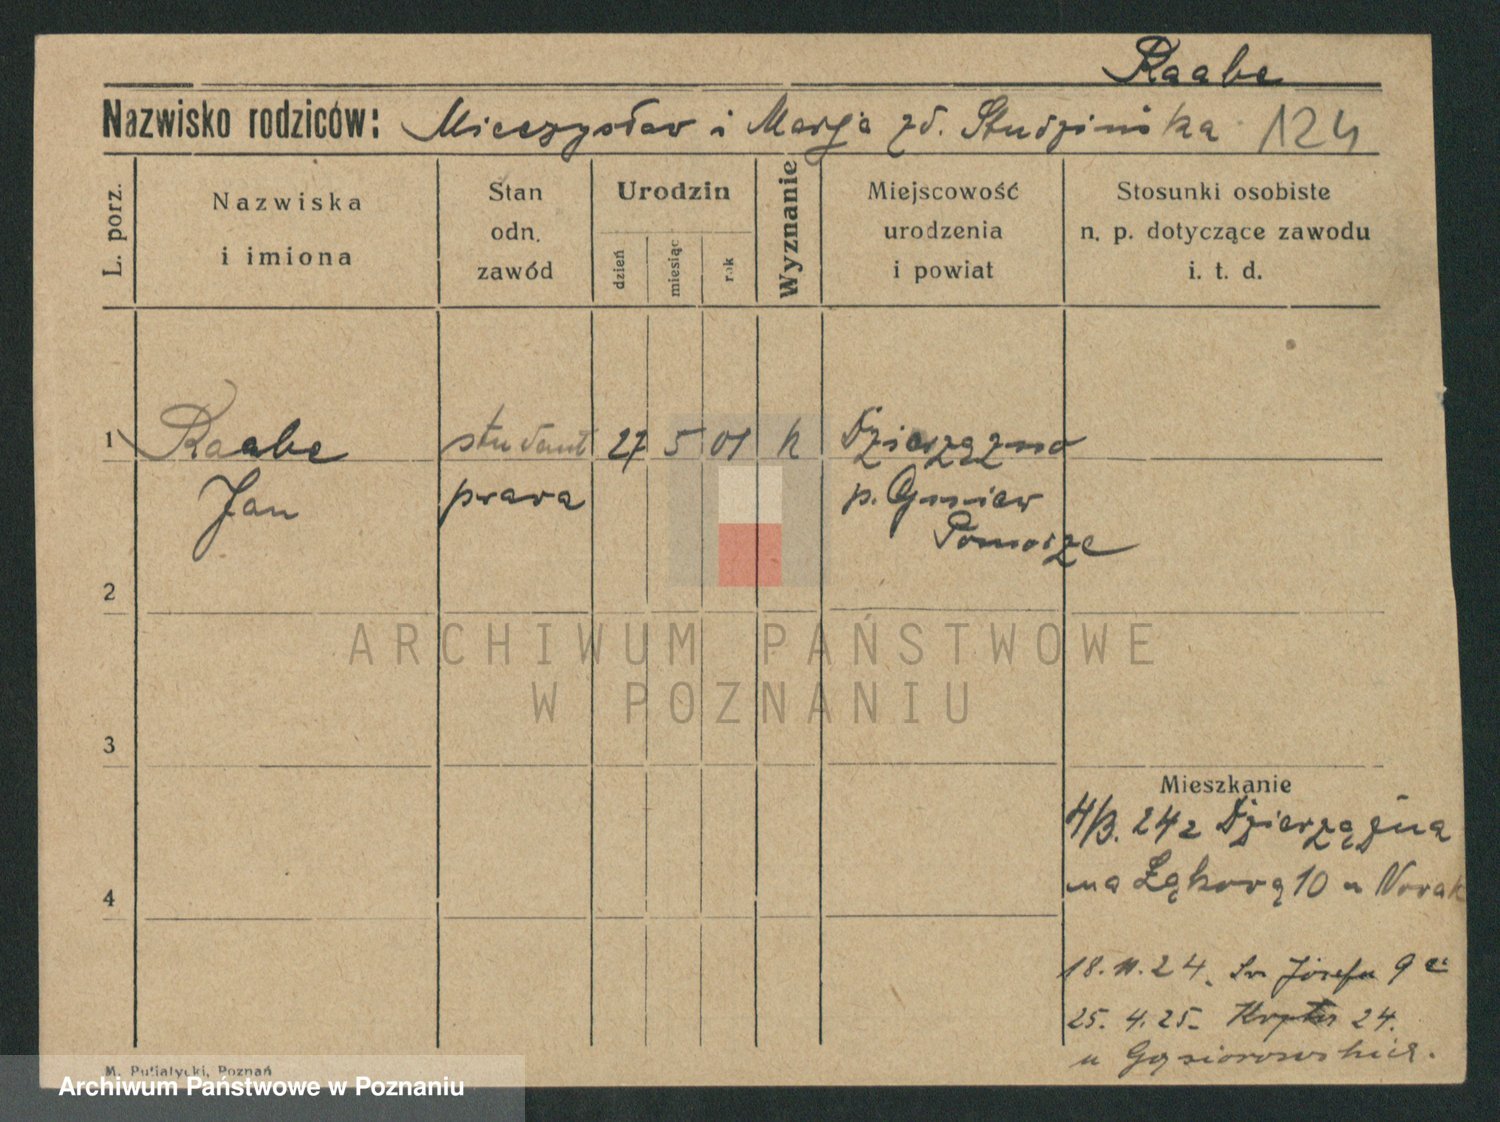 Raabe
Nazwisko rodziców: Mieczysław i Marja zd. Studzińska 124
L. porz.
Nazwiska
i imiona
Stan
odn.
zawód
Urodzin
dzień
miesiąc
rok
Wyznanie
Miejscowość
urodzenia
i powiat
Stosunki osobiste
n. p. dotyczące zawodu
i. t. d.
1 Raabe student 27 5 01 k Dzierzązno
Jan prawa p. Gniew
Pomorze
2
ARCHIWUM PAŃSTWOWE
W POZNANIU
3
Mieszkanie
4/3. 24 z Dzierzążna
na Łąkową 10 u Nowak
4
18. 11. 24. Św Józefa 9
25. 4. 25. 24.
u Gąsiorowskich.
M. Putiatycki, Poznań
Archiwum Państwowe w Poznaniu